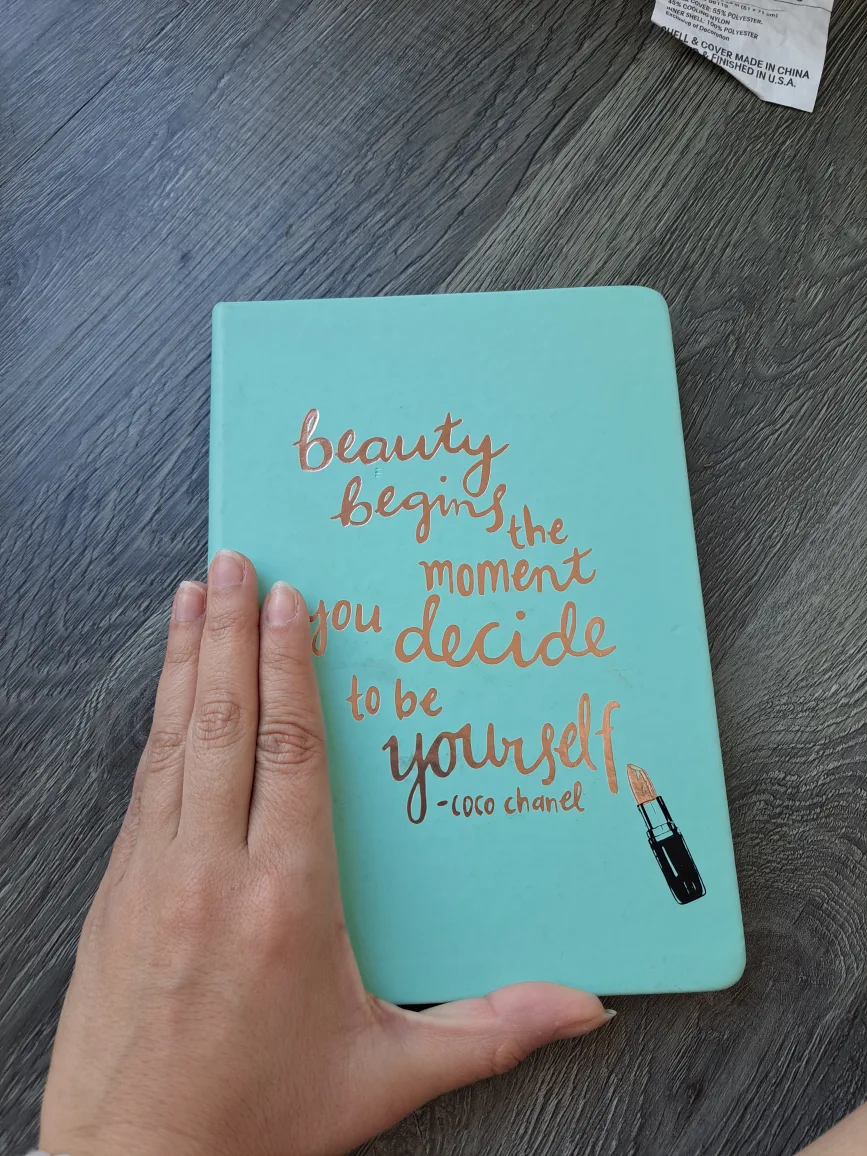 COVER: 55% POLYESTER.
45% COOLING NYLON
INNER SHELL: 100% POLYESTER
Exclusive of Decoration
SHELL & COVER MADE IN CHINA
& FINISHED IN U.S.A.
beauty
begins
the
moment
you decide
to be
yourself
-coco chanel